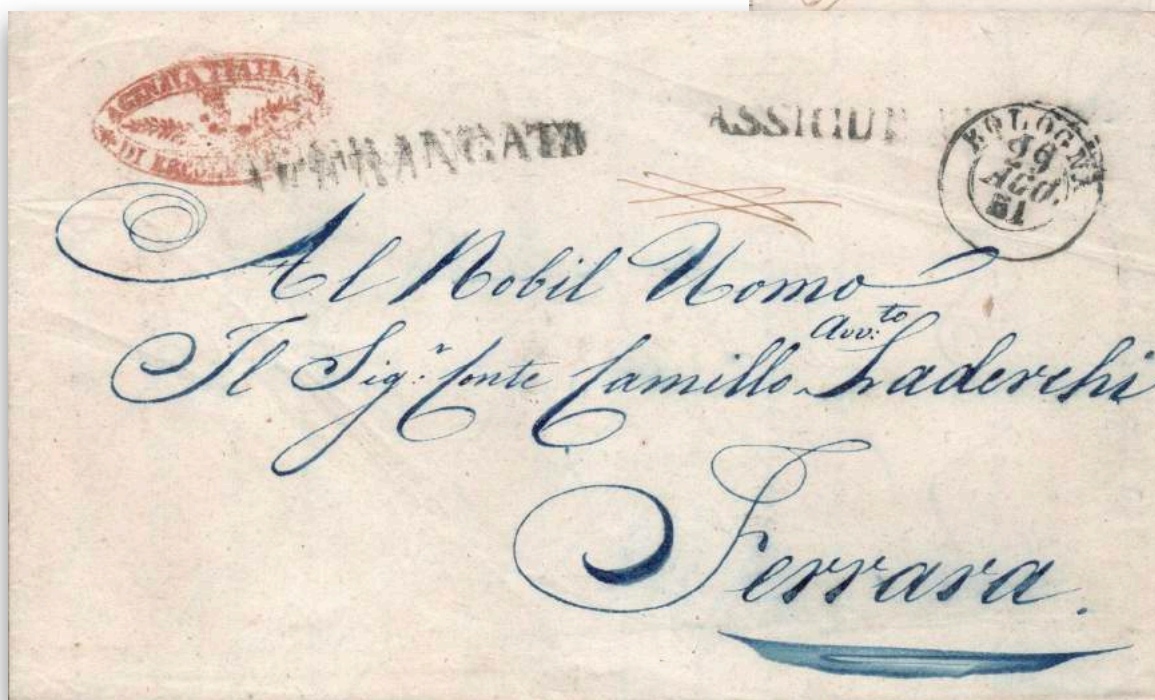 AGENZIA TEATRA
DI ERCOLE
AFFRANCATA
ASSICUR
BOLOGNA
AGO.
51
Al Nobil Uomo
Il Sig.r Conte Camillo Avv.to Laderchi
Ferrara.